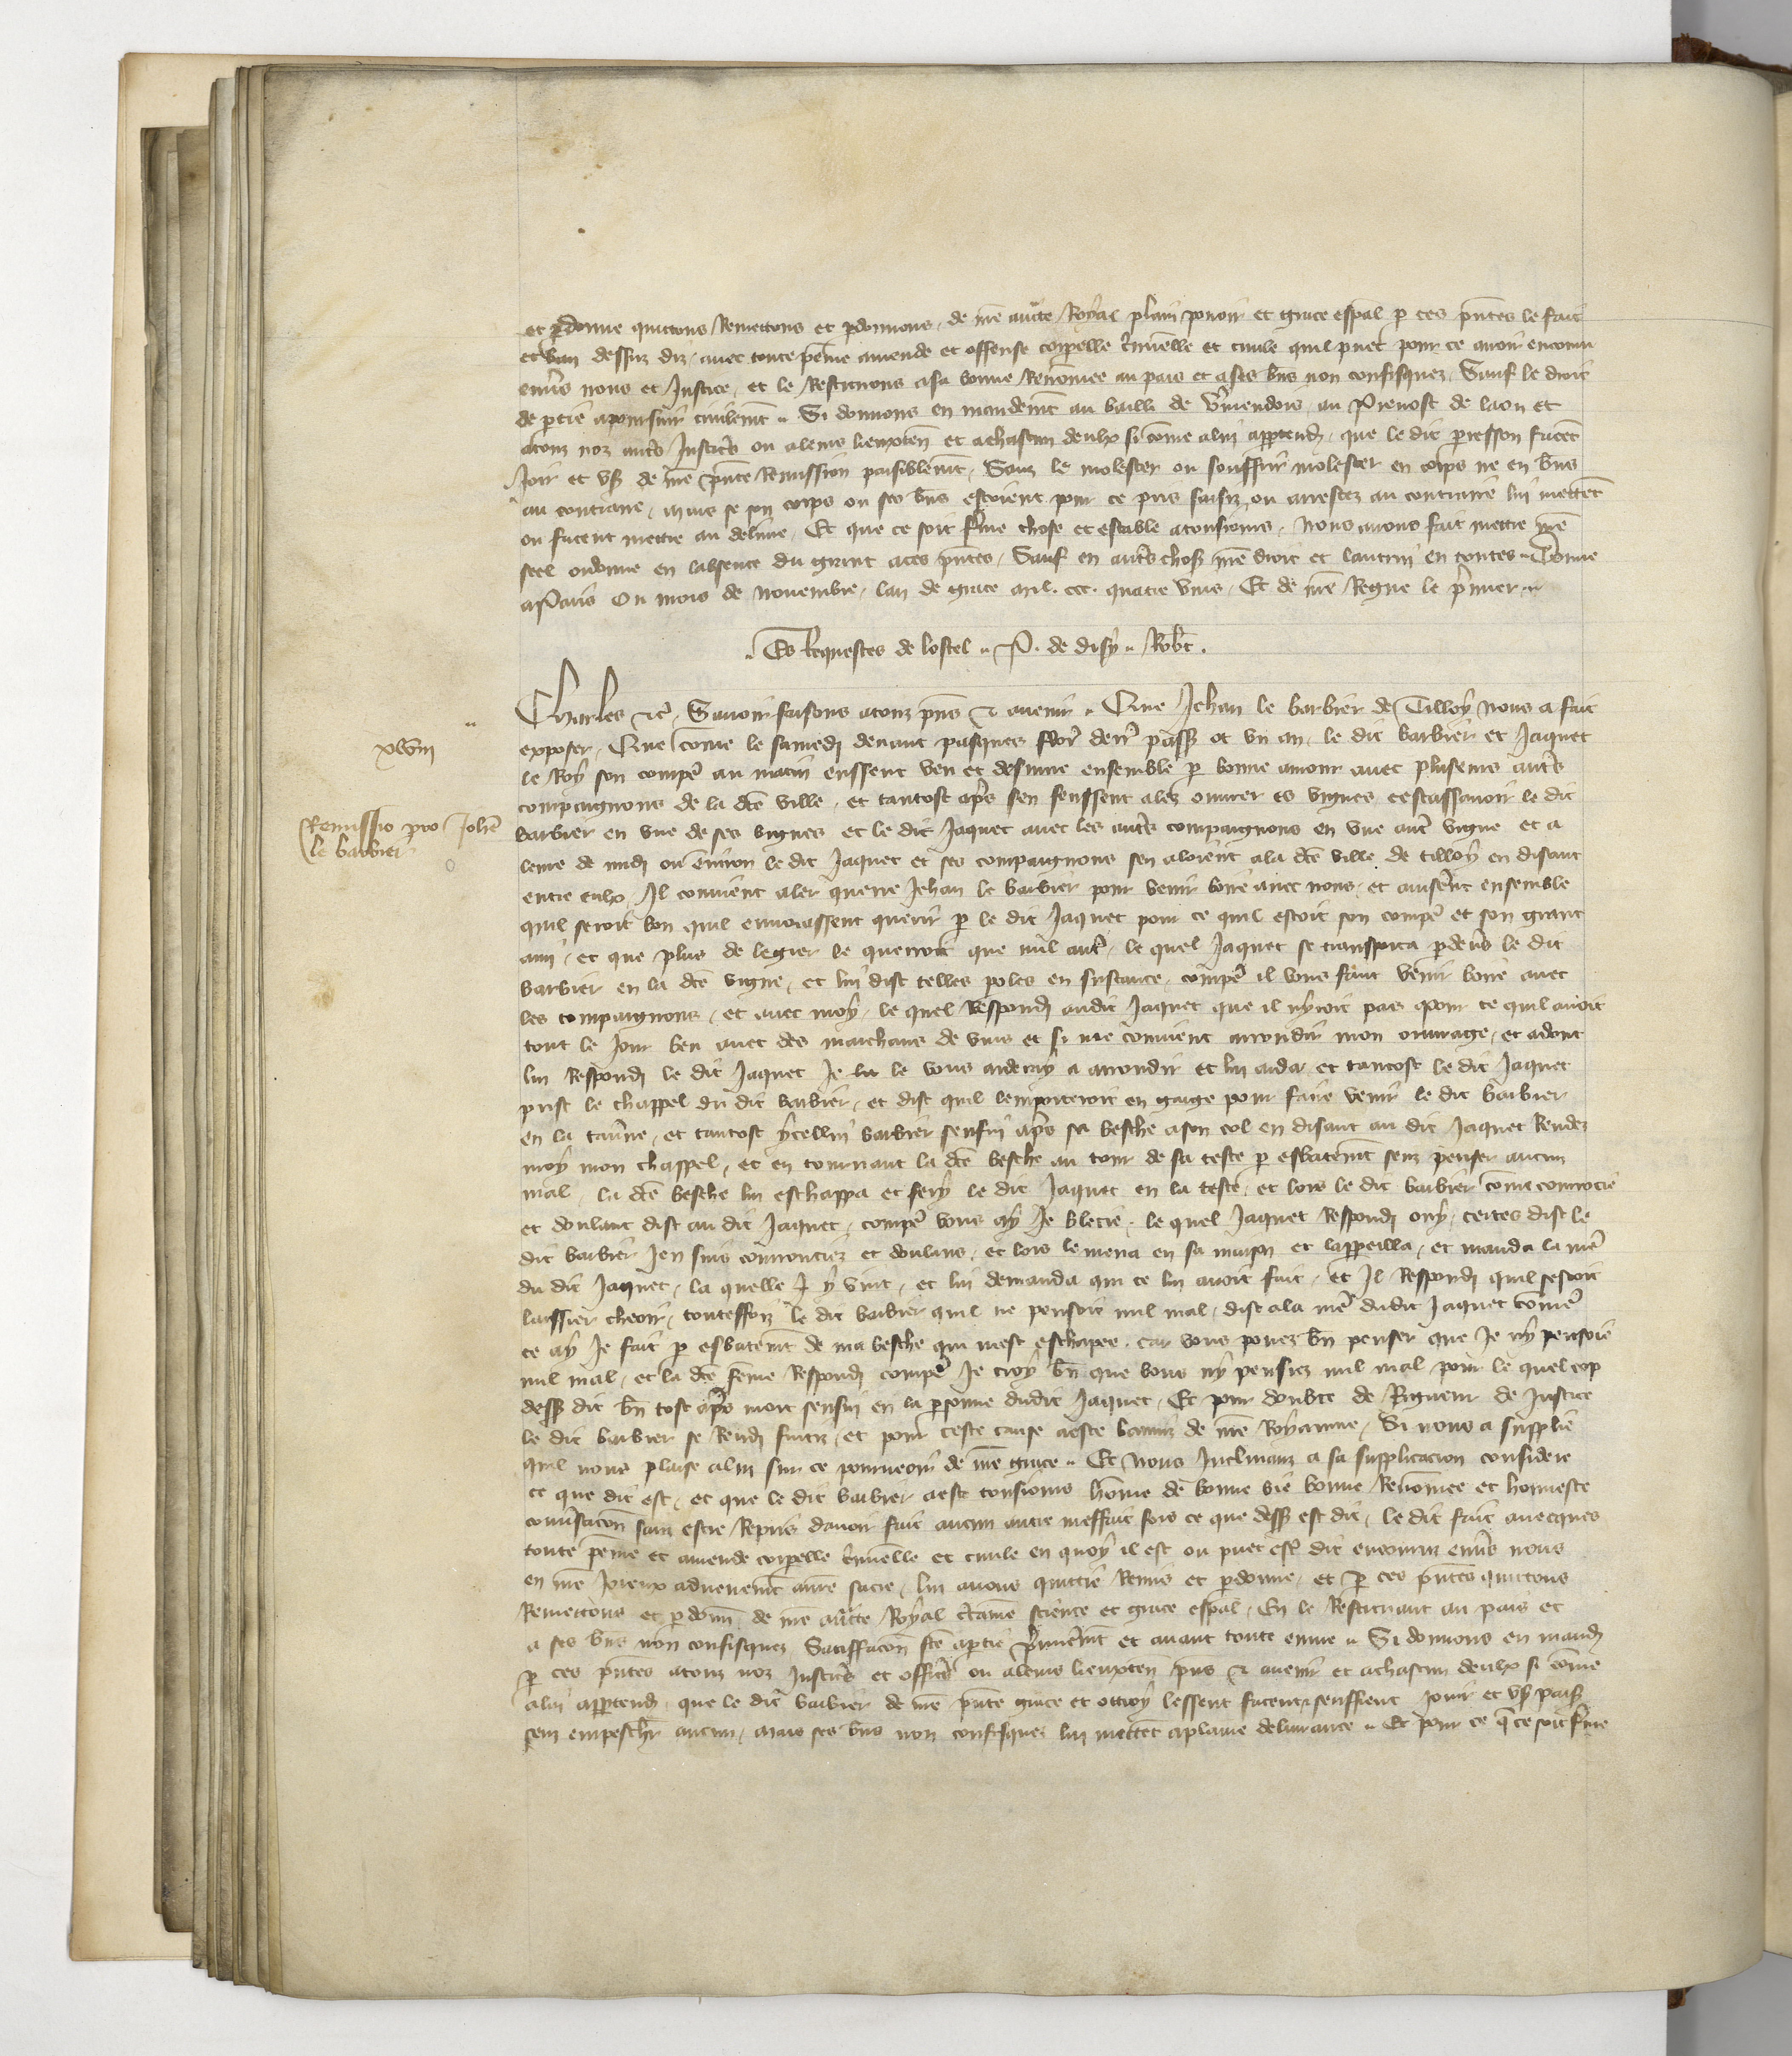 et pdonne quittons Remettons et pdonnons de nre aucte Royal plain pouoir et grace espal p ces pntes le fait
et dessuz diz auec toute peine amende et offense corpelle cminelle et ciuile quil puet pour ce auoir encouru
enuers nous et Justice et le Restituons a sa bonne Renomee au pais et a ses bns non confisquez Sauf le droit
de ptie a poursuir ciuilemt Si donnons en mandemt au bailli de Vmendois au Preuost de laon et
a touz noz autes Justiciers ou a leurs lieuxten et a chascun deulx si come a lui apptendra que le dit facent
Joir et vser de nre pnte Remission paisiblemt Sanz le molester ou souffrir molester en corps ne en bns
au contraire mais se son corps ou ses bns estoient pour ce pris saisiz ou arrestez au contraire lui mettent
ou facent mettre au deliure Et que ce soit ferme chose et estable a tousiours Nous auons fait mettre nre
seel ordonne en labsence du grant a ces pntes Sauf en autes choses nre droit et lautrui en toutes Donne
a Paris Ou mois de Nouembre lan de grace mil ccc quatre vins Et de nre Regne le premier
Es Requestes de lostel P. de disy Robt
Charles etc Sauoir faisons a touz pns et auenir Que Jehan le barbier de Tilloy nous a fait
exposer Que come le samedi deuant pasques flor dern passe ot vn an le dit barbier et Jaquet
xlviii
le Roy son compe au matin eussent beu et desiune ensemble p bonne amour auec pluseurs autes
compaignons de la dte ville et tantost apres sen feussent alez ouurer es vignes cestassauoir le dit
Remissio pro Johe
le barbier
barbier en vne de ses vignes et le dit Jaquet auec les autes compaignons en vne aute vigne et a
leure de midi ou enuiron le dit Jaquet et ses compaignons sen aloient a la dte ville de tilloy en disant
entre eulx Il conuient aler querre Jehan le barbier pour venir boire auec nous et auiserent ensemble
quil seroit bon quil enuoiassent querir p le dit Jaquet pour ce quil estoit son compe et son grant
ami et que plus de legier le querroit que nul aute le quel Jaquet se transporta p deuers le dit
barbier en la dte vigne et lui dist telles poles en sustance compe il vous fault venir boire auec
les compaignons et auec moy le quel Respondi audit Jaquet que il nyroit pas pour ce quil auoit
tout le jour beu auec des marchans de vins et si me conuient arrondir mon ouurage et adont
lui Respondi le dit Jaquet Je le vous aideray a arrondir et lui aida et tantost le dit Jaquet
prist le chappel du dit barbier et dist quil lemporteroit en gaige pour faire venir le dit barbier
en la tauerne et tantost ycellui barbier senfui apres sa besche a son col en disant au dit Jaquet Rendez
moy mon chappel et en tournant la dte besche au tour de sa teste p esbatemt senz penser aucun
mal la dte besche lui eschappa et fery le dit Jaquet en la teste et lors le dit barbier come courrocie
et doulant dist au dit Jaquet compe vous ay Je blecie le quel Jaquet Respondi ouy certes dist le
dit barbier Jen suis courrouciez et doulans et lors le mena en sa maison et lappeilla et manda la mere
du dit Jaquet la quelle y vint et lui demanda qui ce lui auoit fait et Il Respondi quil sestoit
laissier cheoir toutesfoiz le dit barbier quil ne pensoit nul mal dist a la mere dudit Jaquet come
ce ay Je fait p esbatemt de ma besche qui mest eschapee car vous pouez bn penser que Je ny pensoie
nul mal et la dte feme Respondi compe Je croy bn que vous ny pensiez nul mal pour le quel cop
dess dit bn tost apres mort sensui en la psonne dudit Jaquet Et pour doubte de Rigueur de Justice
le dit barbier se Rendi fuitiz et pour ceste cause a este banniz de nre Royaume Si nous a supplie
quil nous plaise a lui sur ce pourueoir de nre grace Et Nous Inclinanz a sa supplicacion considere
ce que dit est et que le dit barbier a este tousiours home de bonne vie bonne Renomee et honneste
conuersacon sanz estre Repris dauoir fait aucun autre meffait fors ce que dess est dit le dit fait auecques
toute peine et amende corpelle cminelle et ciuile en quoy il est ou puet estre dit encouruz enuers nous
en nre Joieux aduenemt a nre sacre lui auons quittie Remis et pdonne et p ces pntes quittons
Remettons et pdonn de nre aucte Royal certaine science et grace espal En le Restituant au pais et
a ses bns non confisquez Satisfacon fte a ptie premieremt et auant toute euure Si donnons en mand
p ces pntes a touz noz Justiciers et officiers ou a leurs lieuxten pns et auenir et a chascun deulx si come
a lui apptendra que le dit barbier de nre pnte grace et ottroy lessent facent seuffrent Jouir et vser pais
senz empeschier aucun mais ses bns non confisquez lui mettent a plaine deliurance Et pour ce q ce soit ferme